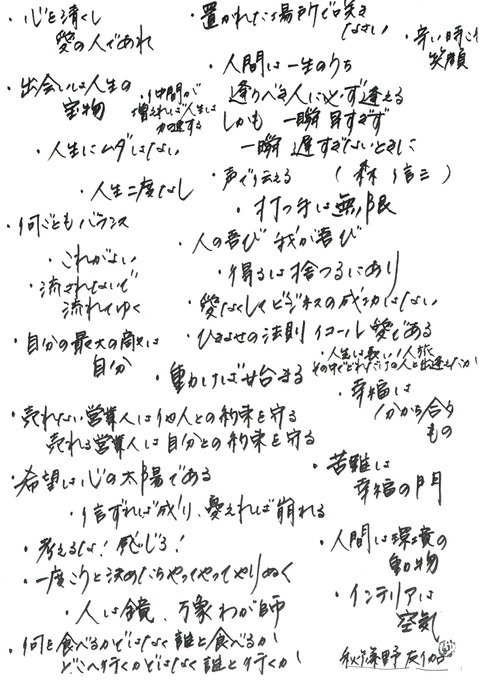 ・心を清くし
愛の人であれ
・置かれた場所で咲き
なさい
・辛い時こそ
笑顔
・出会いは人生の
宝物
・仲間が
増えれば人生は
加速する
・人間は一生のうち
逢うべき人に必ず逢える
しかも 一瞬早すぎず
一瞬 遅すぎないときに
（森信三）
・人生にムダはない
・人生二度なし
・声で伝える
・打つ手は無限
・何ごともバランス
・人の喜び 我が喜び
・これがよい
・得るは捨つるにあり
・流されないで
流れてゆく
・愛なくしてビジネスの成功はない
・ひきよせの法則 イコール 愛である
・自分の最大の敵は
自分
・人生は長い1人旅
その中でどれだけの人と出逢えたか
・動けば始まる
・幸福は
分かち合う
もの
・売れない営業人は他人との約束を守る
売れる営業人は自分との約束を守る
・希望は心の太陽である
・苦難は
幸福の門
・信ずれば成り、憂えれば崩れる
・考えるな！感じろ！
・人間は環境の
動物
・一度こうと決めたらやってやってやりぬく
・人は鏡、万象わが師
・インテリアは
空気
・何を食べるかではなく誰と食べるか
どこへ行くかではなく誰と行くか